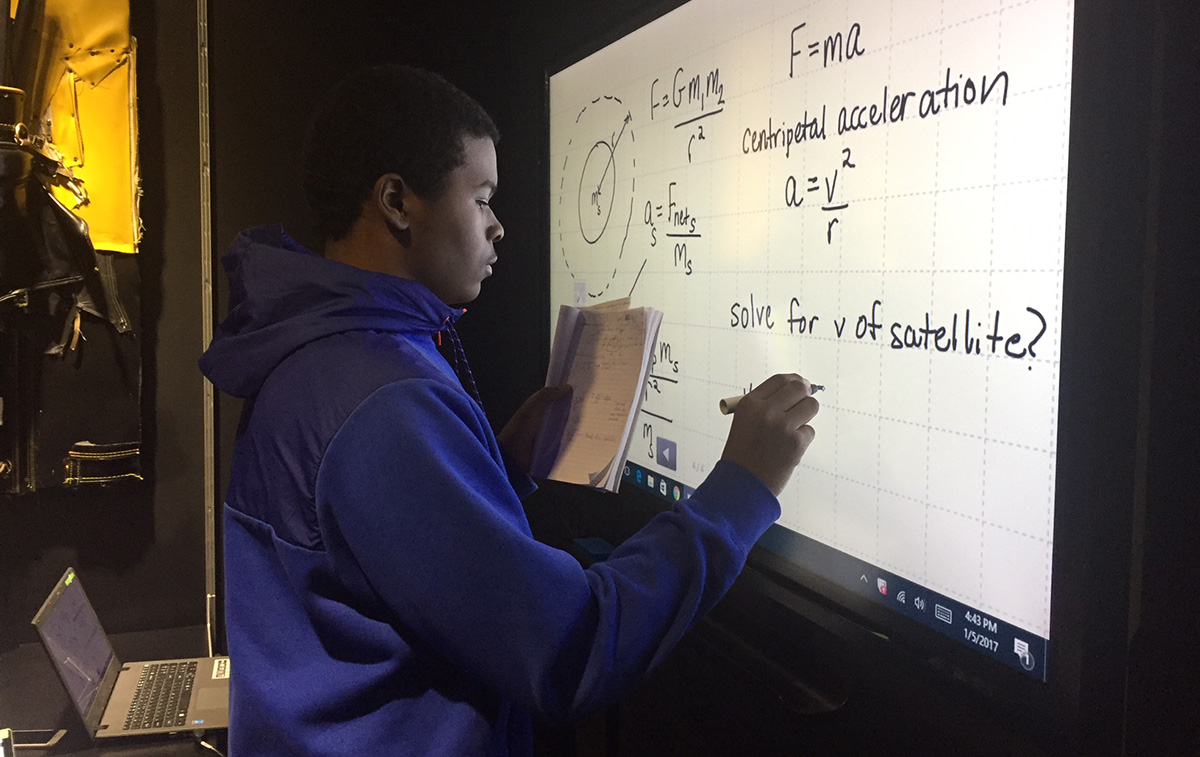 F=ma
F=Gm₁m₂
r²
centripetal acceleration
a=v²
r
r
mₛ
aₛ=Fnetₛ
Mₛ
solve for v of satellite?
mₛ
r²
mₛ
4:43 PM
1/5/2017
1